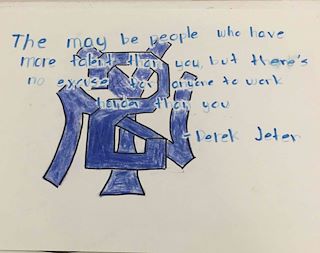 The may be people who have
more talent than you, but there's
no excuse for anyone to work
harder than you
- Derek Jeter